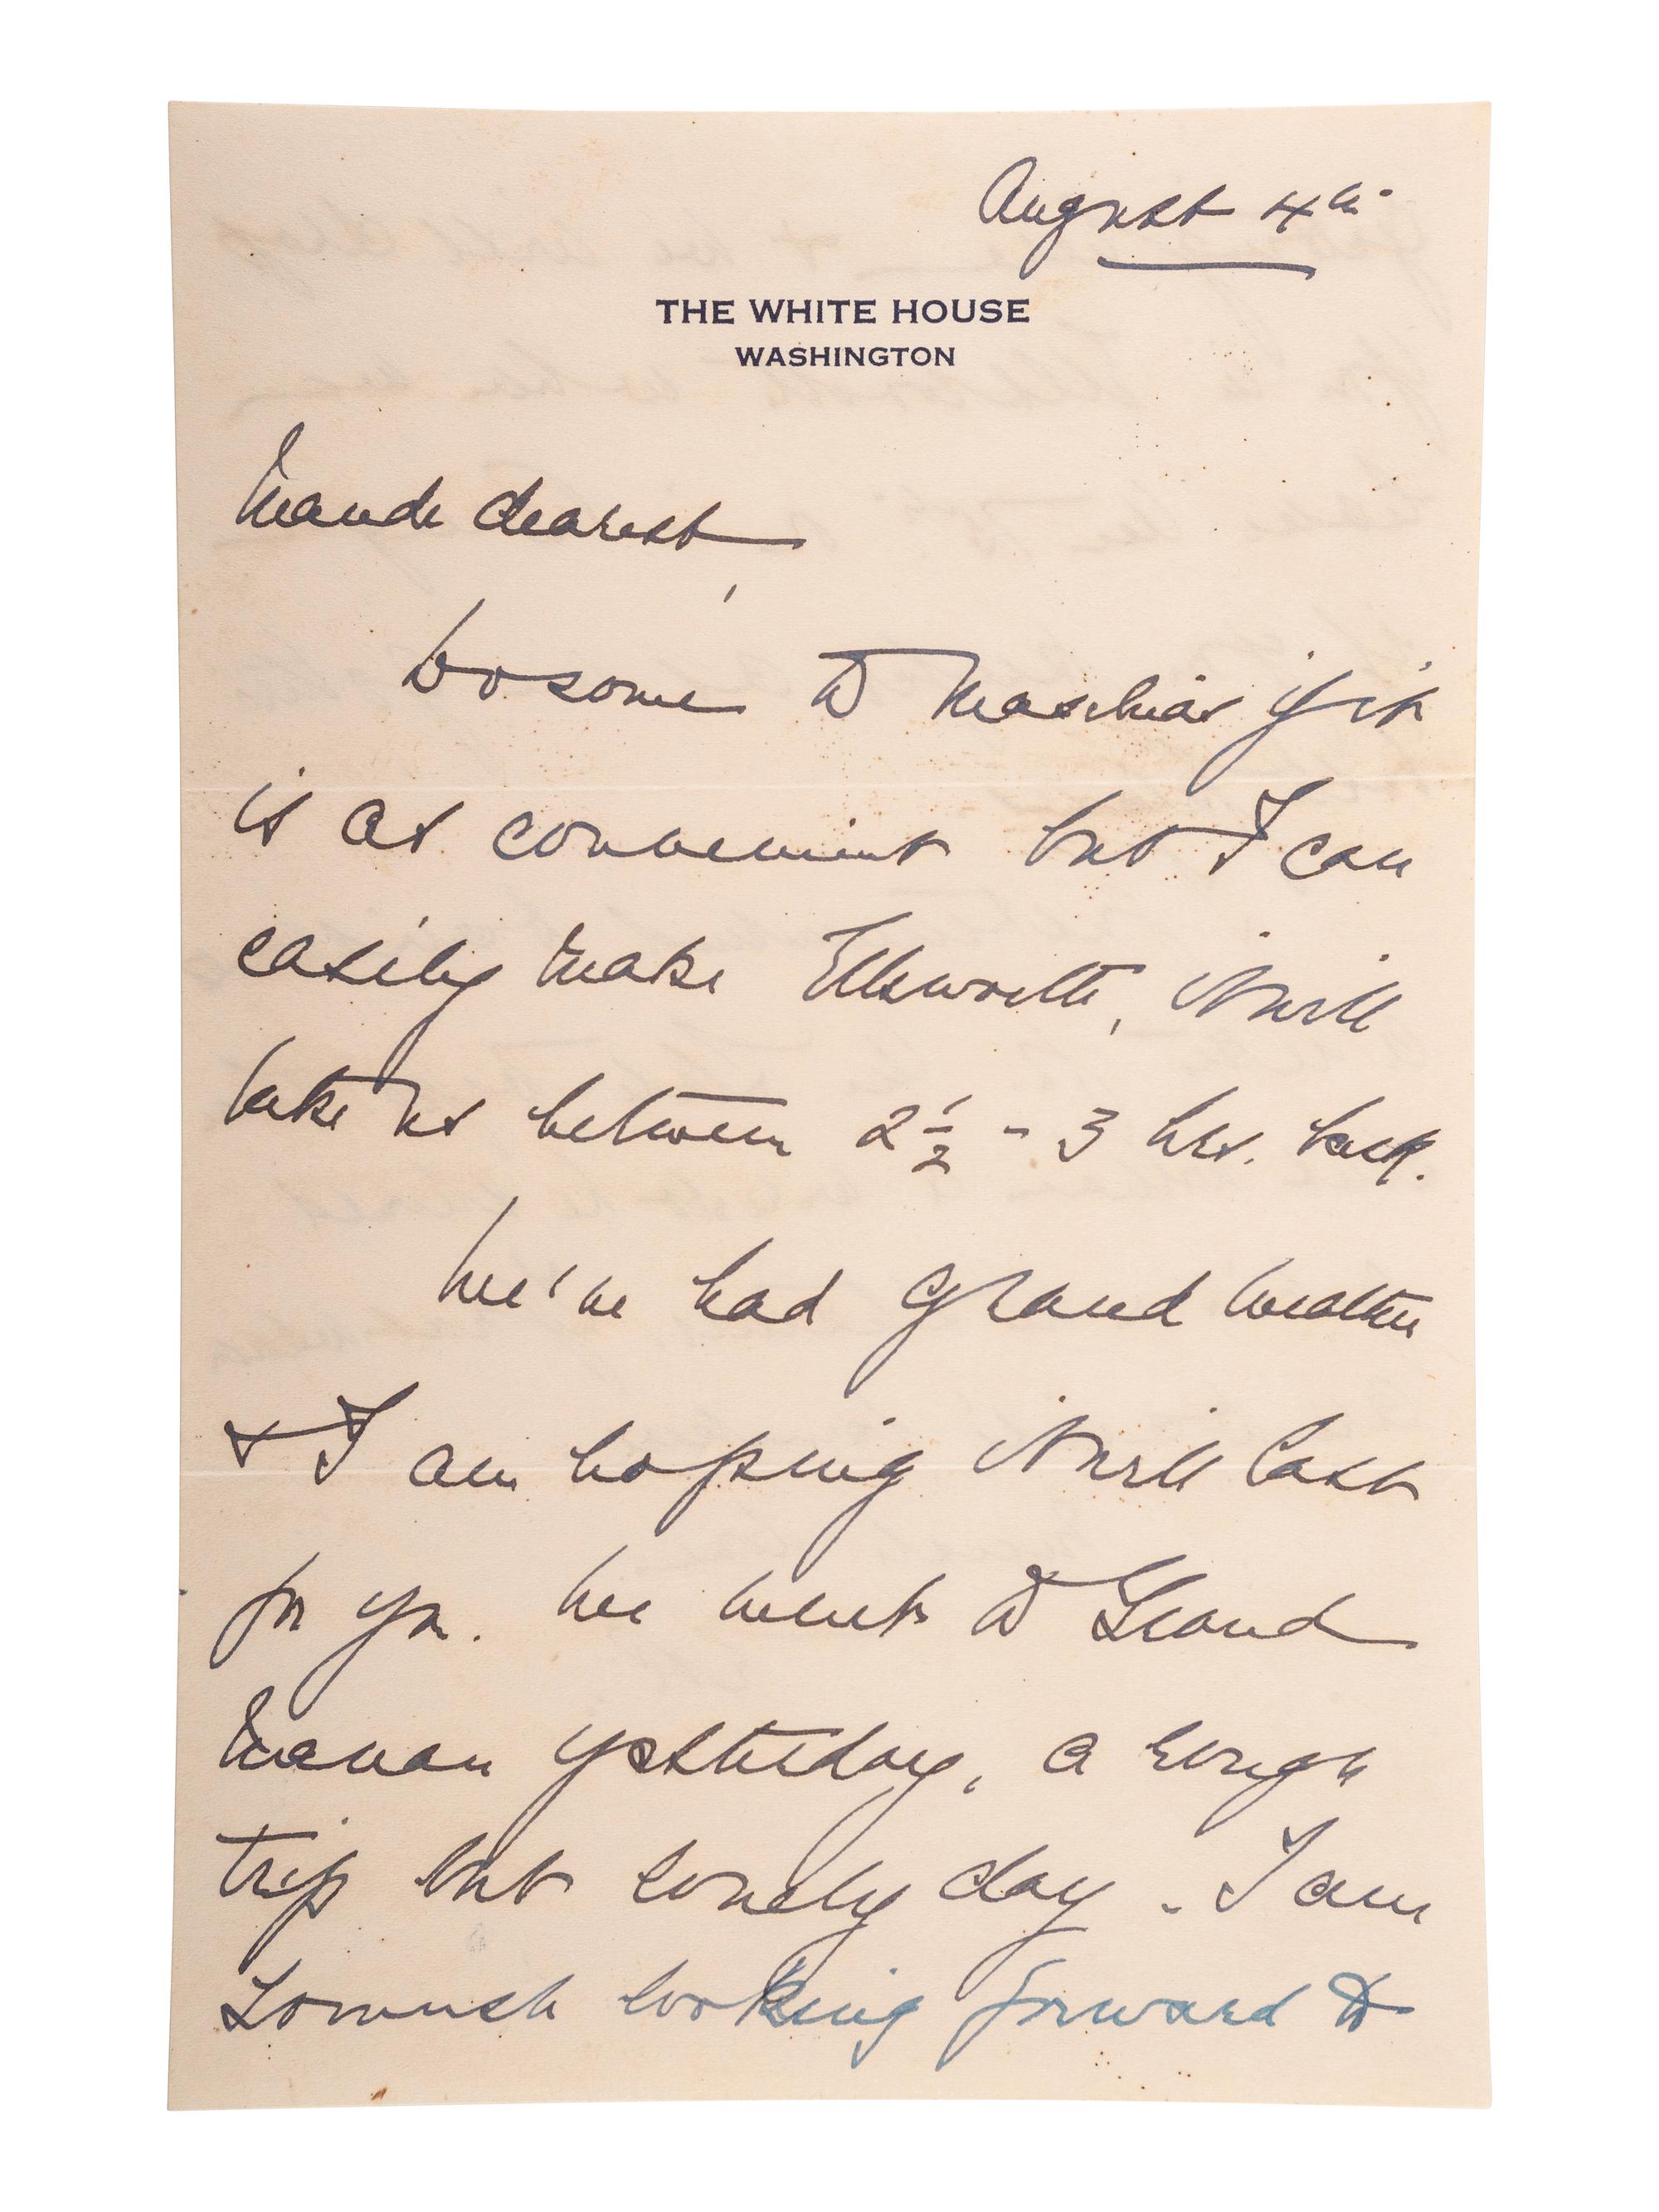 August 4th
THE WHITE HOUSE
WASHINGTON
Maude dearest,
Do come to Machias if it
is as convenient but I can
easily make Ellsworth, it will
take us between 2½ - 3 hrs. back.
We've had grand weather
& I am hoping it will last
for you. We went to Grand
Manan yesterday, a rough
trip but lovely day. I am
so much looking forward to